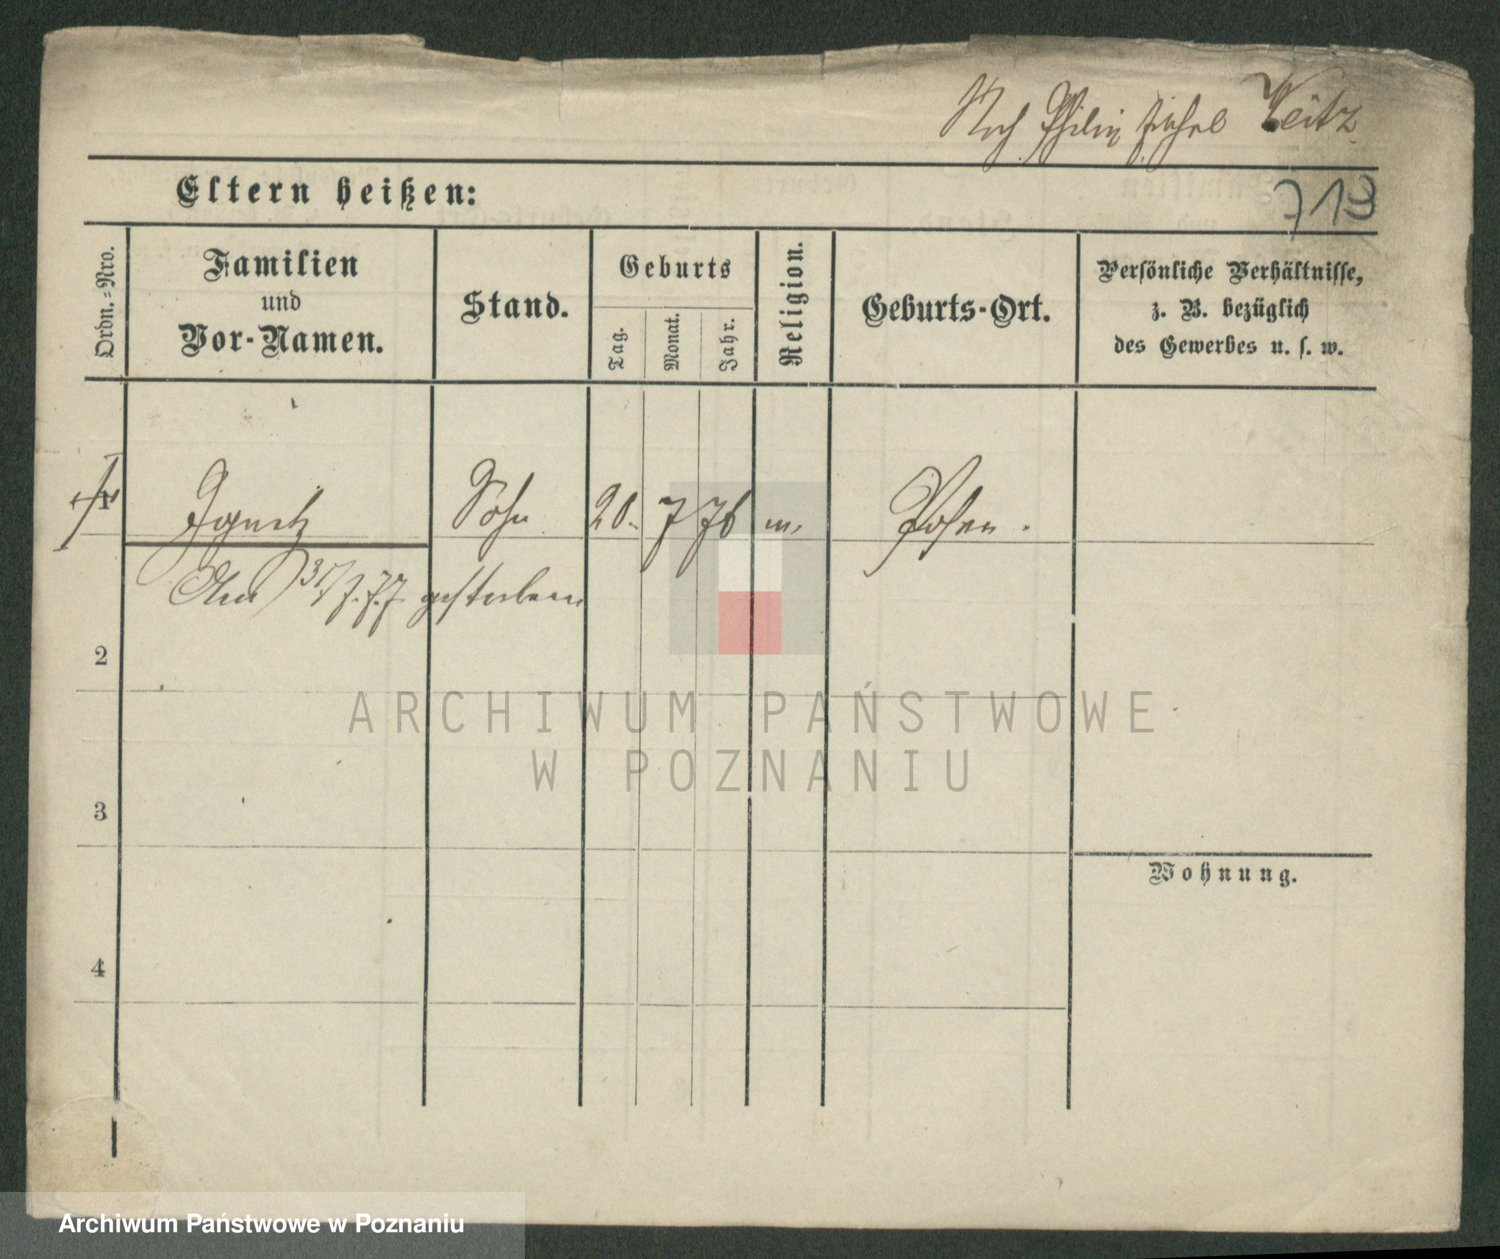 Noch Weitz
Eltern heißen:
713
Ordn.=Nro.
Familien
und
Vor-Namen.
Stand.
Geburts
Tag.
Monat.
Jahr.
Religion.
Geburts-Ort.
Persönliche Verhältnisse,
z. B. bezüglich
des Gewerbes u. s. w.
1 Ignatz Sohn 20. 7 76 m. Posen.
Am 31/7.77 gestorben
2
ARCHIWUM PAŃSTWOWE
W POZNANIU
3
Wohnung.
4
Archiwum Państwowe w Poznaniu